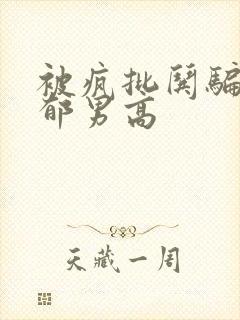 被疯批鬨騙
郁男高
天藏一周